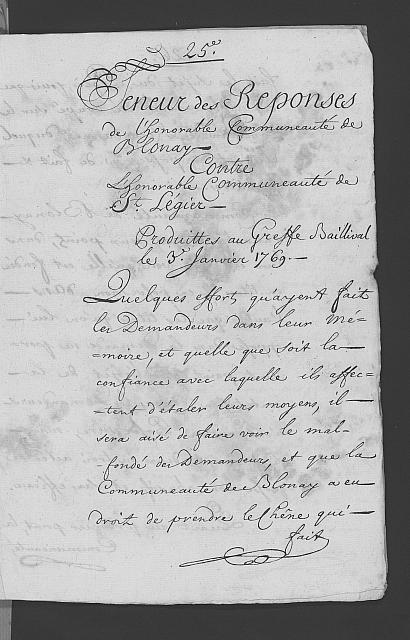 25e.
Teneur des Reponses
de l'honorable Communeauté de
Blonay —
Contre
L'honorable Communeauté de
St. Légier —
Produittes au Greffe Baillival
le 3e. Janvier 1769. —
Quelques effort qu'ayent fait
les Demandeurs dans leur Mé=
=moire, et quelle que soit la —
confiance avec laquelle ils affec-
-tent d'étaler leurs moyens, il —
sera aisé de faire voir le mal-
-fondé des Demandeurs, et que la
Communeauté de Blonay a eu
droit de prendre le Chêne qui —
fait